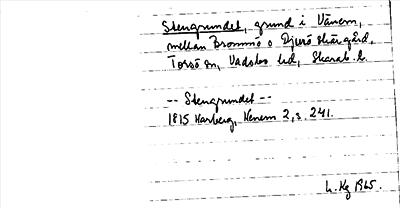 Stengrundet, grund i Vänern,
mellan Brommö o Djurö skärgård,
Torsö sn, Vadsbo hd, Skarab. l.
-- Stengrundet --
1815 Warberg, Venern 2, s. 241.
1965.